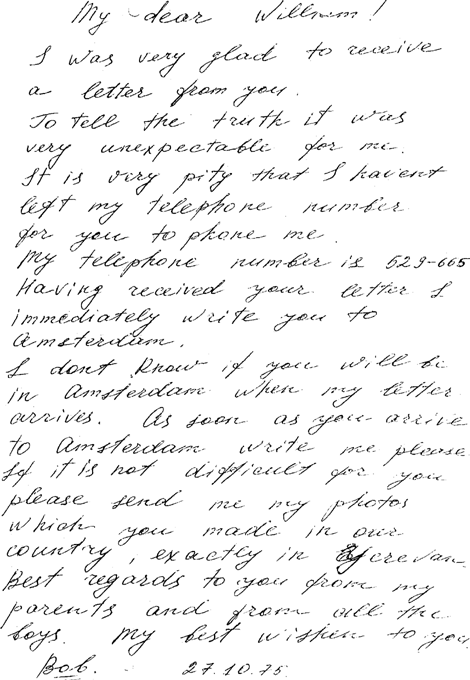 My dear William!
I was very glad to receive
a letter from you.
To tell the truth it was
very unexpectable for me.
It is very pity that I havent
left my telephone number
for you to phone me.
My telephone number is 529-665
Having received your letter I
immediately write you to
Amsterdam.
I dont know if you will be
in Amsterdam when my letter
arrives. As soon as you arrive
to Amsterdam write me please
If it is not difficult for you
please send me my photos
which you made in our
country, exactly in Yerevan.
Best regards to you from my
parents and from all the
boys. My best wishes to you
Bob. 27.10.75